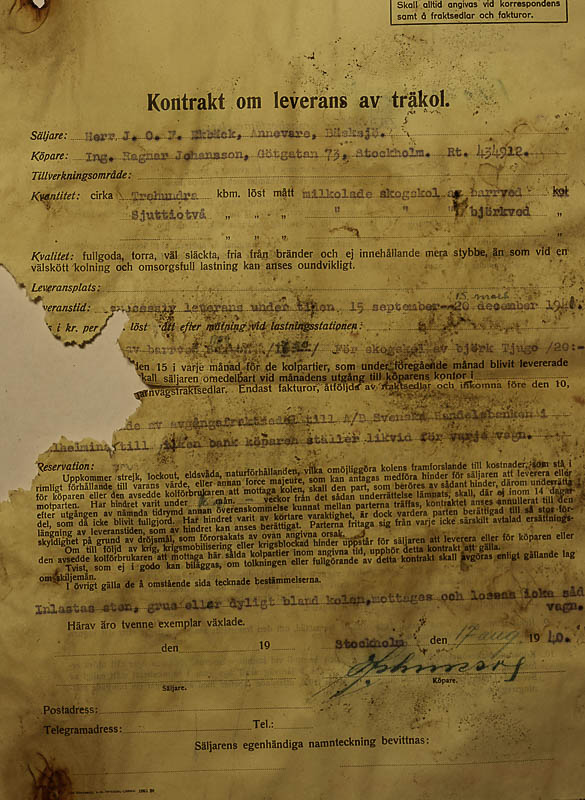 Skall alltid angivas vid korrespondens
samt å fraktsedlar och fakturor.
Kontrakt om leverans av träkol.
Säljare: Herr J. O. F. Ekbäck, Annevare, Bäcksjö.
Köpare: Ing. Ragnar Johansson, Götgatan 73, Stockholm. Rt. 434912.
Tillverkningsområde:
Kvantitet: cirka Trehundra kbm. löst mått milkolade skogskol av barrved kol
Sjuttiotvå „ „ " " björkved „
„ „ „ „
Kvalitet: fullgoda, torra, väl släckta, fria från bränder och ej innehållande mera stybbe, än som vid en
välskött kolning och omsorgsfull lastning kan anses oundvikligt.
Leveransplats:
15 mars
veranstid: successiv leverans under tiden, 15 september- 20 december 194
i kr. per löst mått efter mätning vid lastningsstationen:
av barrved För skogskol av björk Tjugo /20:-
den 15 i varje månad för de kolpartier, som under föregående månad blivit levererade
skall säljaren omedelbart vid månadens utgång till köparens kontor i
järnvägsfraktsedlar. Endast fakturor, åtföljda av fraktsedlar och inkomna före den 10,
de av avgångsfraktsedel till A/B Svenska Handelsbanken i
lhelmina, till vilken bank köparen ställer likvid för varje vagn.
Reservation:
Uppkommer strejk, lockout, eldsvåda, naturförhållanden, vilka omöjliggöra kolens framforslande till kostnader, som stå i
rimligt förhållande till varans värde, eller annan force majeure, som kan antagas medföra hinder för säljaren att leverera eller
för köparen eller den avsedde kolförbrukaren att mottaga kolen, skall den part, som beröres av sådant hinder, därom underrätta
motparten. Har hindret varit under mån. veckor från det sådan underrättelse lämnats, skall, där ej inom 14 dagar
efter utgången av nämnda tidrymd annan överenskommelse kunnat mellan parterna träffas, kontraktet anses annullerat till den
del, som då icke blivit fullgjord. Har hindret varit av kortare varaktighet, är dock vardera parten berättigad till så stor för-
längning av leveranstiden, som av hindret kan anses berättigat. Parterna fritaga sig från varje icke särskilt avtalad ersättnings-
skyldighet på grund av dröjsmål, som förorsakats av ovan angivna orsak.
Om till följd av krig, krigsmobilisering eller krigsblockad hinder uppstår för säljaren att leverera eller för köparen eller
den avsedde kolförbrukaren att mottaga här sålda kolpartier inom angivna tid, upphör detta kontrakt att gälla.
Tvist, som ej i godo kan biläggas, om tolkningen eller fullgörande av detta kontrakt skall avgöras enligt gällande lag
om skiljemän.
I övrigt gälla de å omstående sida tecknade bestämmelserna.
Inlastas sten, grus eller dyligt bland kolen, mottages och lossas icke såd
vagn.
Härav äro tvenne exemplar växlade.
den 19 Stockholm den 17 aug. 1940.
Säljare. Köpare.
Postadress:
Telegramadress: Tel.:
Säljarens egenhändiga namnteckning bevittnas: